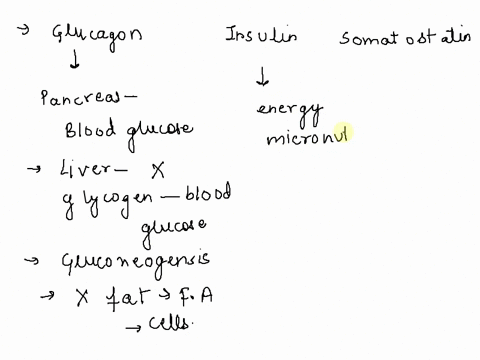 → Glucagon
↓
Pancreas –
Blood glucose
→ Liver – X
glycogen – blood
glucose
→ Gluconeogensis
→ X fat → F.A
→ cells.
Insulin
↓
energy
micronut
Somatostatin